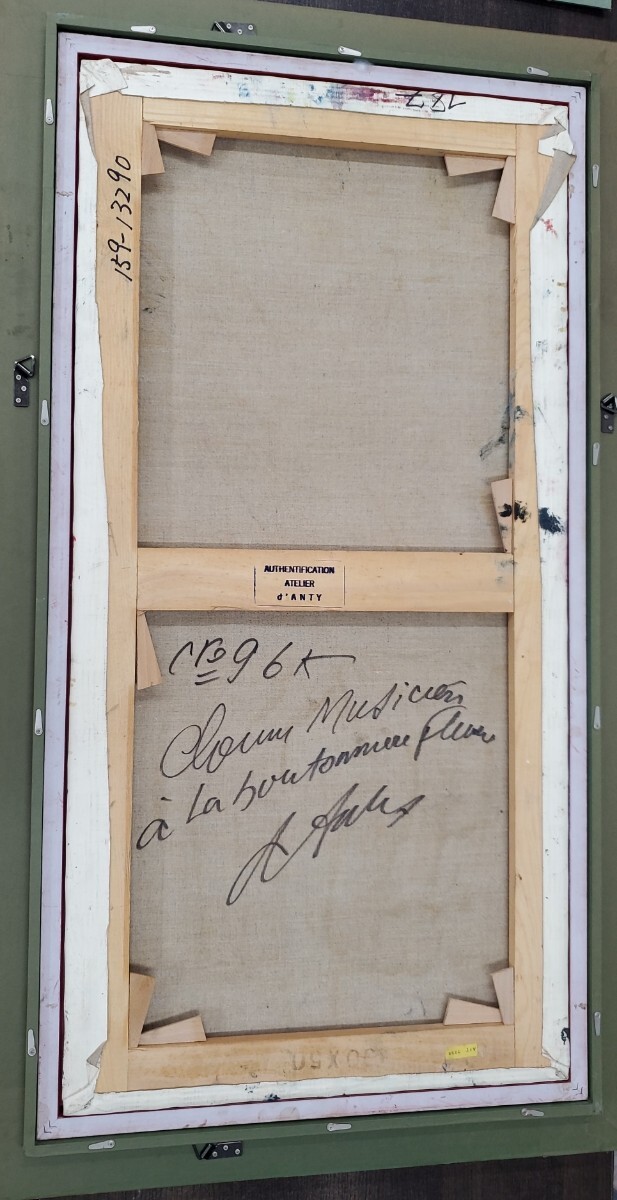 187
159-13290
AUTHENTIFICATION
ATELIER
d'ANTY
Nº 96K
Clown Musicien
à la boutonnière fleurie